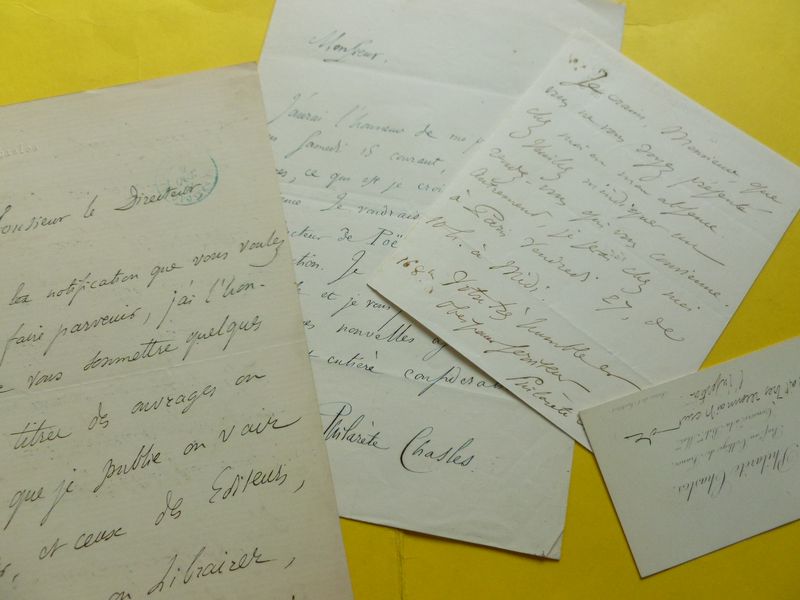 Monsieur le Directeur
la notification que vous voulez
faire parvenir, j'ai l'hon-
vous soumettre quelques
titres des ouvrages ou
que je publie ou vais
et ceux des Editeurs,
ou Librairies,
Monsieur,
J'aurai l'honneur de me
Samedi 15 courant,
ce que est je croi
Je voudrais
cteur de Poë
tion. Je
et je vous
nouvelles
entière considérat
Philarète Chasles.
Je crains, Monsieur, que
vous ne vous soyez présenté
chez moi en mon absence.
Veuillez m'indiquer un
rendez-vous qui vous convienne.
Autrement, je serai chez moi
à Paris Vendredi 27, de
10 h. à Midi.
Votre très humble et
Serviteur
Philarète
Philarète Chasles